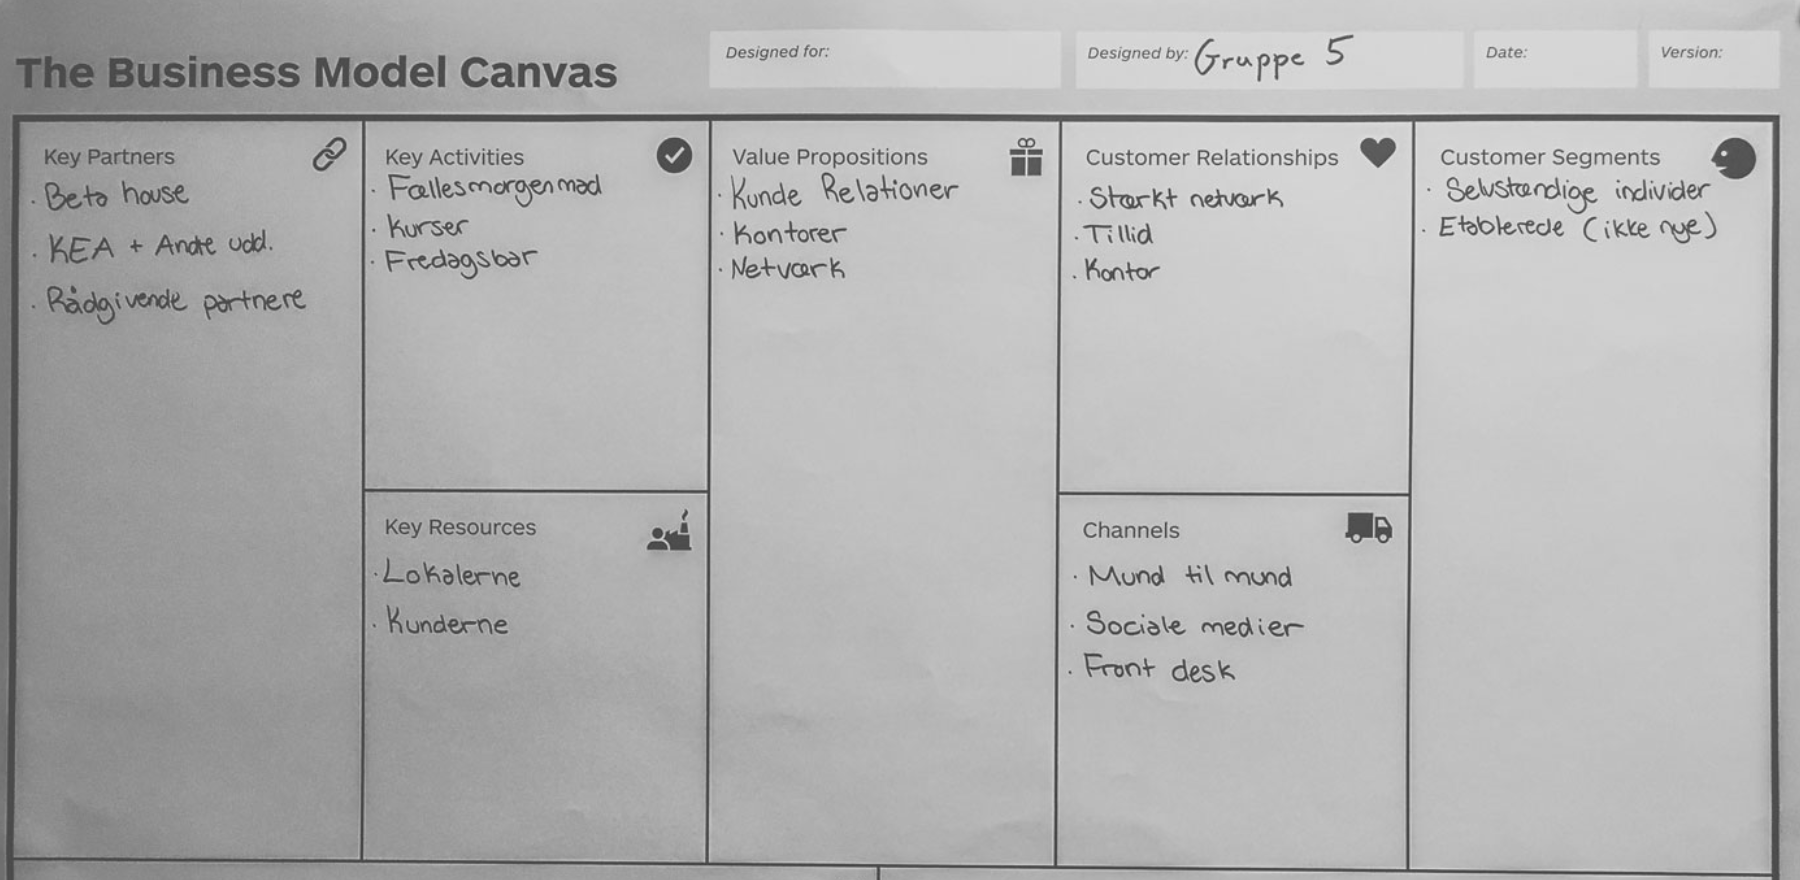 The Business Model Canvas
Designed for:
Designed by: Gruppe 5
Date:
Version:
Key Partners
· Beta house
· KEA + Andre udd.
· Rådgivende partnere
Key Activities
· Fællesmorgenmad
· Kurser
· Fredagsbar
Key Resources
· Lokalerne
· Kunderne
Value Propositions
· Kunde Relationer
· Kontorer
· Netværk
Customer Relationships
· Stærkt netværk
· Tillid
· Kontor
Channels
· Mund til mund
· Sociale medier
· Front desk
Customer Segments
· Selvstændige individer
· Etablerede (ikke nye)